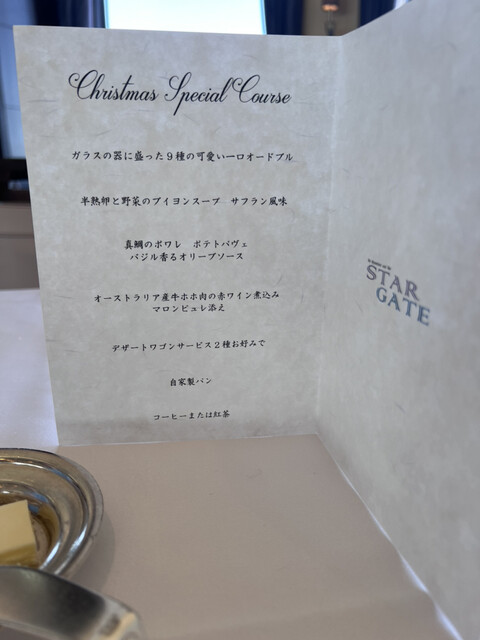 Christmas Special Course
ガラスの器に盛った9種の可愛い一口オードブル
半熟卵と野菜のブイヨンスープ　サフラン風味
真鯛のポワレ　ポテトパヴェ
バジル香るオリーブソース
オーストラリア産牛ホホ肉の赤ワイン煮込み
マロンピュレ添え
デザートワゴンサービス2種お好みで
自家製パン
コーヒーまたは紅茶
STAR
GATE